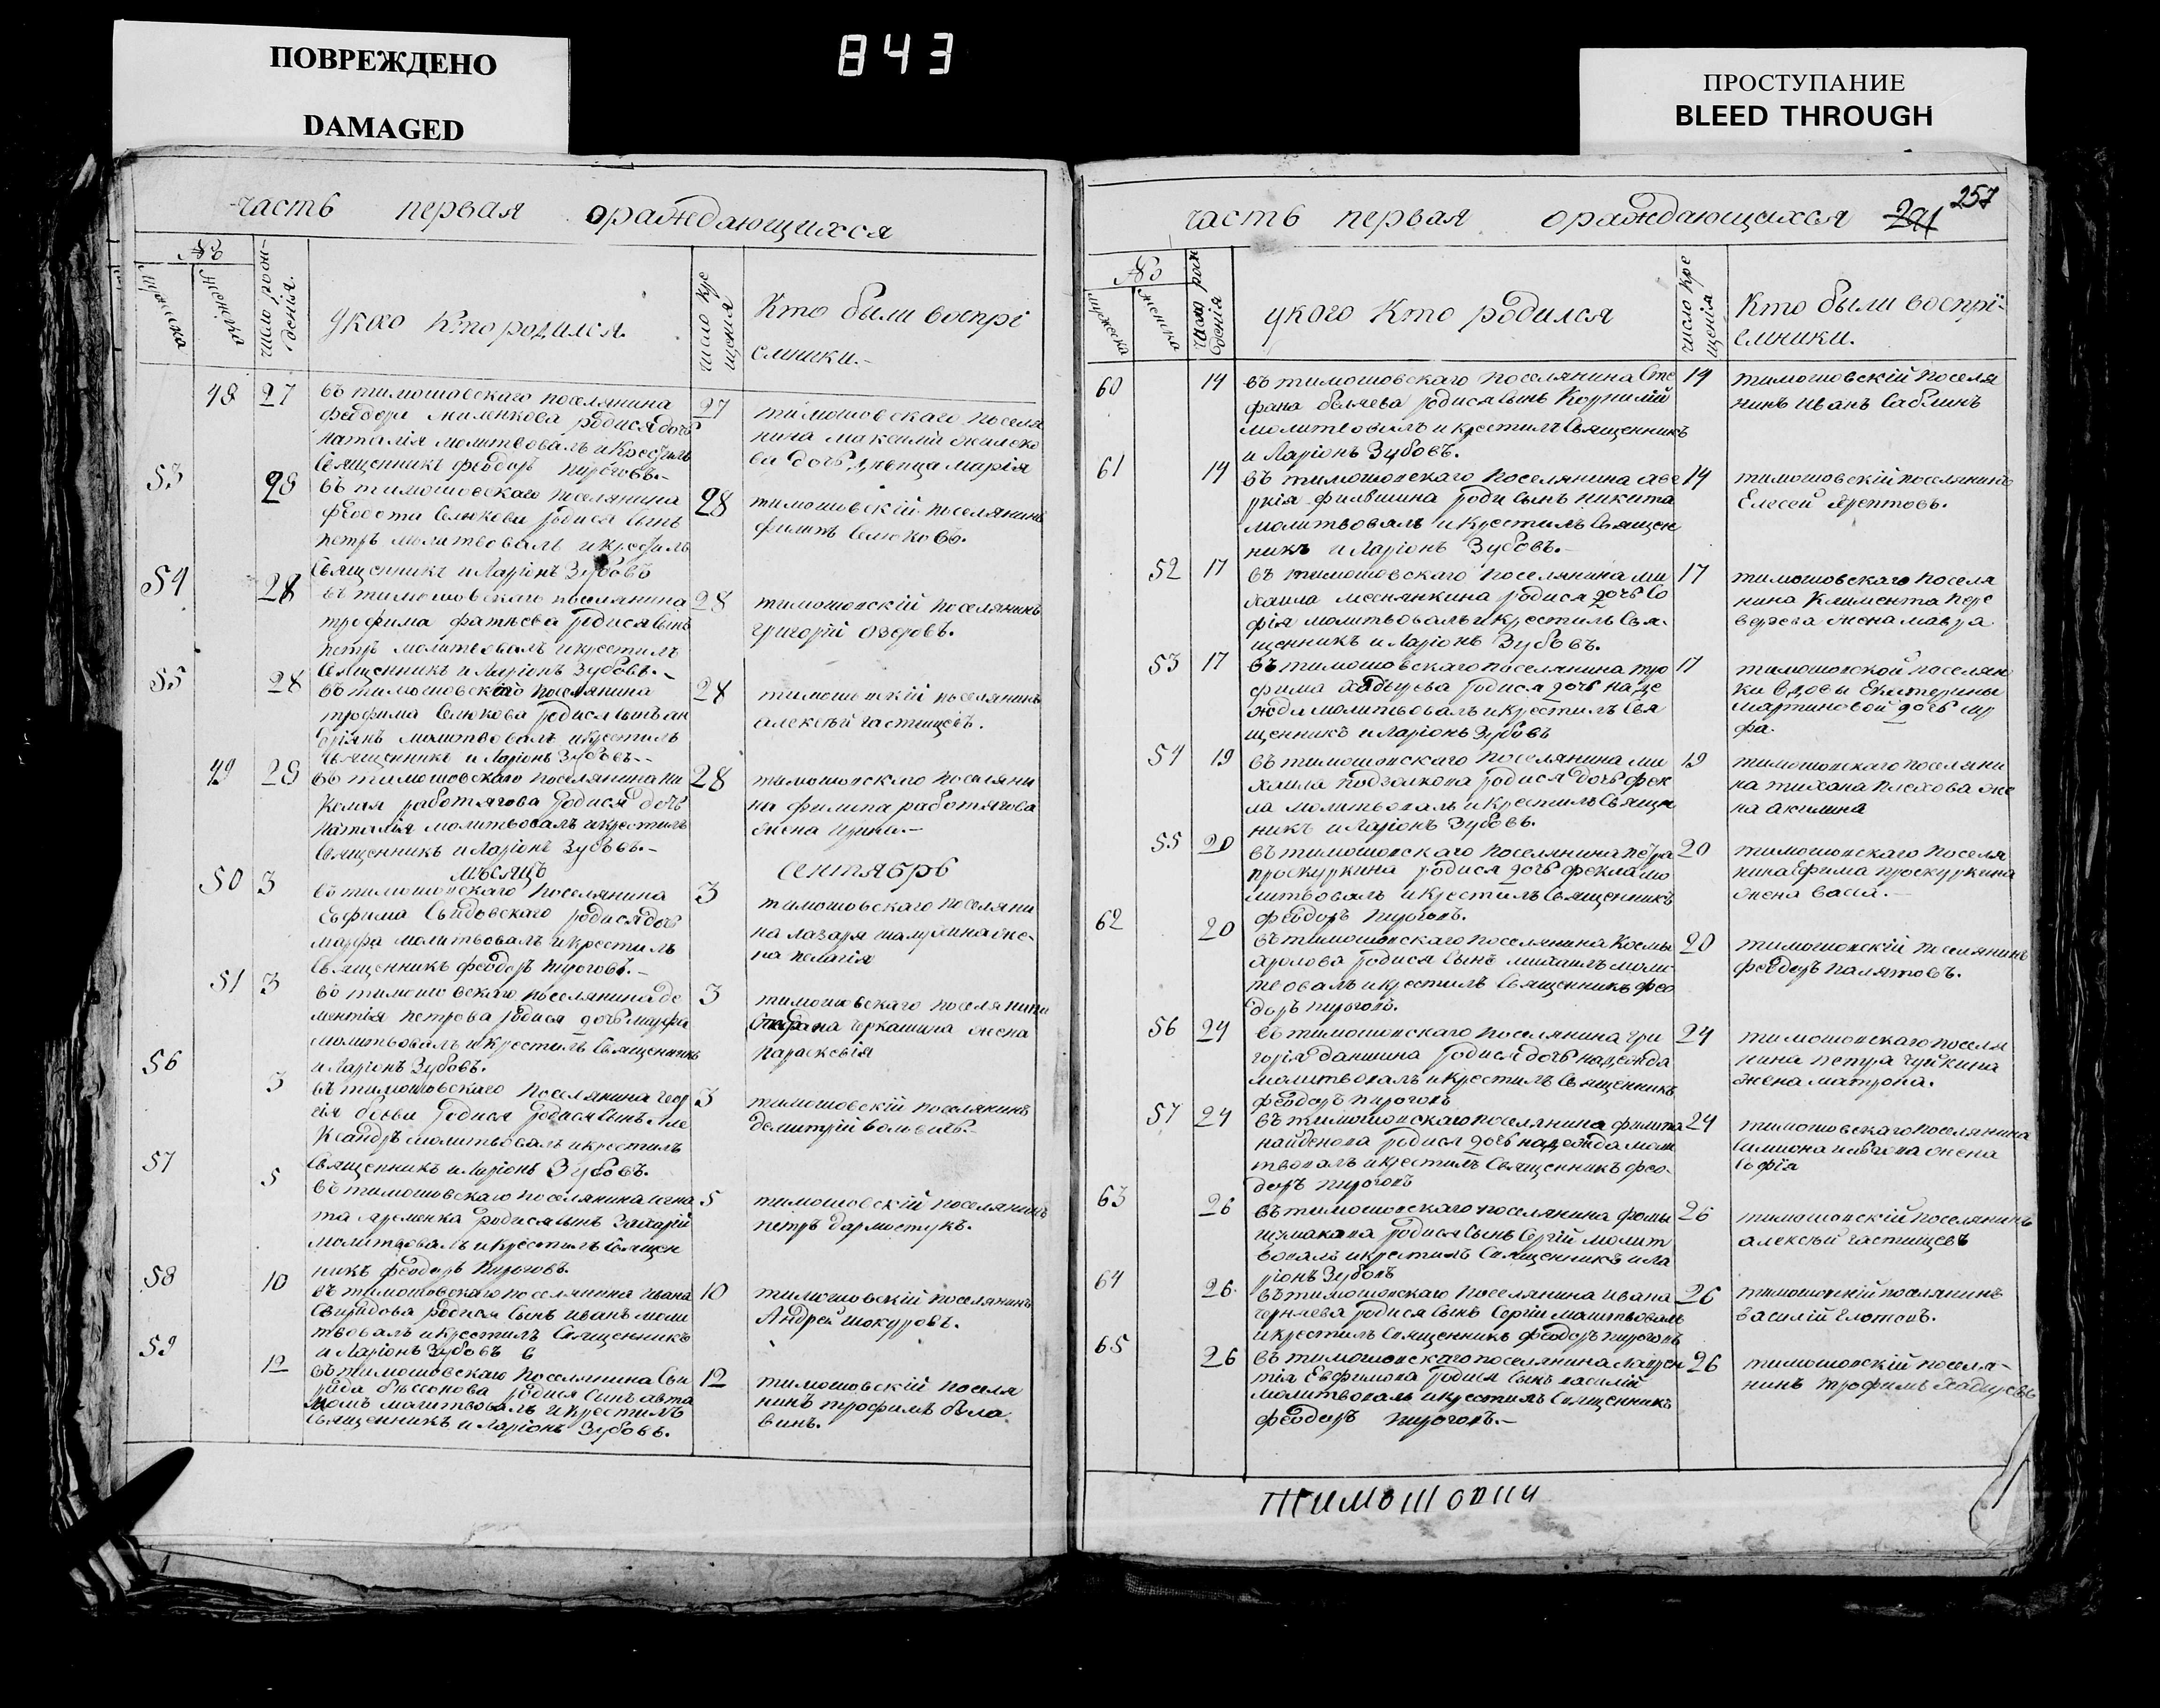 ПОВРЕЖДЕНО
DAMAGED
843
ПРОСТУПАНИЕ
BLEED THROUGH
часть первая ораждающихся
№
мужеска
женска
число рож-
дения.
укаго кто родился.
число кре
щения
Кто были воспрі
емники.-
48 27 въ тимошовскаго поселянина
феодора родися дочь
наталія молитвовалъ и крестилъ
Священникъ феодоръ пироговъ.-
27 тимошовскаго поселя
нина
дочь девица марія
53 28 въ тимошовскаго поселянина
федота Селюкова родися Сынъ
петръ молитвовалъ и крестилъ
Священникъ иларіонъ Зубовъ
28 тимошовскій поселянинъ
филипъ Селюковъ.
54 28 въ тимошовскаго поселянина
трофима фатьева родися Сынъ
петръ молитвовалъ и крестилъ
Священникъ иларіонъ Зубовъ.-
28 тимошовскій поселянинъ
григорій озеровъ.
55 28 въ тимошовскаго поселянина
трофима Селюкова родися сынъ ан
дріянъ молитвовалъ и крестилъ
Священникъ иларіонъ Зубовъ.-
28 тимошовскій поселянинъ
алексей частищевъ.
49 28 въ тимошовскаго поселянина ни
колая работягова родися дочь
наталія молитвовалъ и крестилъ
Священникъ иларіонъ Зубовъ.-
28 тимошовскаго поселяни
на филипа работягова
жена ирина.-
мѣсяцъ Сентябрь
50 3 въ тимошовскаго поселянина
Евфима родися дочь
марфа молитвовалъ и крестилъ
Священникъ феодоръ пироговъ.-
3 тимошовскаго поселяни
на лазаря же-
на пелагія
51 3 въ тимошовскаго поселянина де
ментія петрова родися дочь марфа
молитвовалъ и крестилъ Священникъ
иларіонъ Зубовъ.
3 тимошовскаго поселянина
Стефана черкашина жена
параскевія
56 3 въ тимошовскаго поселянина геор
гія родися родися Сынъ Але
ксандръ молитвовалъ и крестилъ
Священникъ иларіонъ Зубовъ.
3 тимошовскій поселянинъ
димитрій
57 5 въ тимошовскаго поселянина игна
та яременка родися сынъ Захарій
молитвовалъ и крестилъ Священ
никъ феодоръ пироговъ.
5 тимошовскій поселянинъ
петръ дармостукъ.
58 10 въ тимошовскаго поселянина ивана
Свиридова родися Сынъ иванъ моли
твовалъ и крестилъ Священникъ
иларіонъ Зубовъ
10 тимошовскій поселянинъ
Андрей шокуровъ.
59 12 въ тимошовскаго поселянина Сви
рида бѣссонова родися Сынъ авта
момъ молитвовалъ и крестилъ
Священникъ иларіонъ Зубовъ.
12 тимошовскій поселя
нинъ трофимъ бла
винъ.
часть первая ораждающихся 257
№
мужеска
женска
число рож
дения
укого кто родился
число кре
щения
Кто были воспрі-
емники.
60 14 въ тимошовскаго поселянина Сте
фана беляева родися сынъ Корнилій
молитвовалъ и крестилъ Священникъ
иларіонъ Зубовъ.
14 тимошовскій поселя
нинъ иванъ Саблинъ
61 14 въ тимошовскаго поселянина аве
ркія филвшина роди Сынъ никита
молитвовалъ и крестилъ Священ
никъ иларіонъ Зубовъ.-
14 тимошовскій поселянинъ
Елесей
52 17 въ тимошовскаго поселянина ми
хаила меснянкина родися дочь Со
фія молитвовалъ и крестилъ Свя-
щенникъ иларіонъ Зубовъ.
17 тимошовскаго поселя
нина Климента пере
веряева жена мавра
53 17 въ тимошовскаго поселянина тро
фима хадыева родися дочь наде
жда молитвовалъ и крестилъ Свя
щенникъ иларіонъ Зубовъ
17 тимошовской поселян
ки вдовы Екатерины
мартиновой дочь мар
фа.
54 19 въ тимошовскаго поселянина ми
хаила подзолкова родися дочь фек
ла молитвовалъ и крестилъ Священ
никъ иларіонъ Зубовъ.
19 тимошовскаго поселяни
на тихона плехова же
на акилина
55 20 въ тимошовскаго поселянина петра
проскуркина родися дочь фекла мо
литвовалъ и крестилъ Священникъ
феодоръ пироговъ.
20 тимошовскаго поселя
нина Ефима проскуркина
жена васса.-
62 20 въ тимошовскаго поселянина Космы
орлова родися Сынъ михаилъ моли
твовалъ и крестилъ Священникъ фео
доръ пироговъ.
20 тимошовскій поселянинъ
феодоръ палятовъ.
56 24 въ тимошовскаго поселянина гри
горія даншина родися дочь надежда
молитвовалъ и крестилъ Священникъ
феодоръ пироговъ
24 тимошовскаго поселя
нина петра чуйкина
жена матрона.
57 24 въ тимошовскаго поселянина филипа
найденова родися дочь надежда моли
твовалъ и крестилъ Священникъ фео-
доръ пироговъ
24 тимошовскаго поселянина
Симиона жена
Софія
63 26 въ тимошовскаго поселянина фомы
шумакова родися Сынъ Сергій молит
вовалъ и крестилъ Священникъ ила
ріонъ Зубовъ
26 тимошовскій поселянинъ
алексей частищевъ
64 26 въ тимошовскаго поселянина ивана
черняева родися Сынъ Сергій молитвовалъ
и крестилъ Священникъ феодоръ пироговъ
26 тимошовскій поселянинъ
василій
65 26 въ тимошовскаго поселянина лаврен
тія Евфимова родися Сынъ василій
молитвовалъ и крестилъ Священникъ
феодоръ пироговъ.-
26 тимошовскій поселя-
нинъ трофимъ хадыревъ